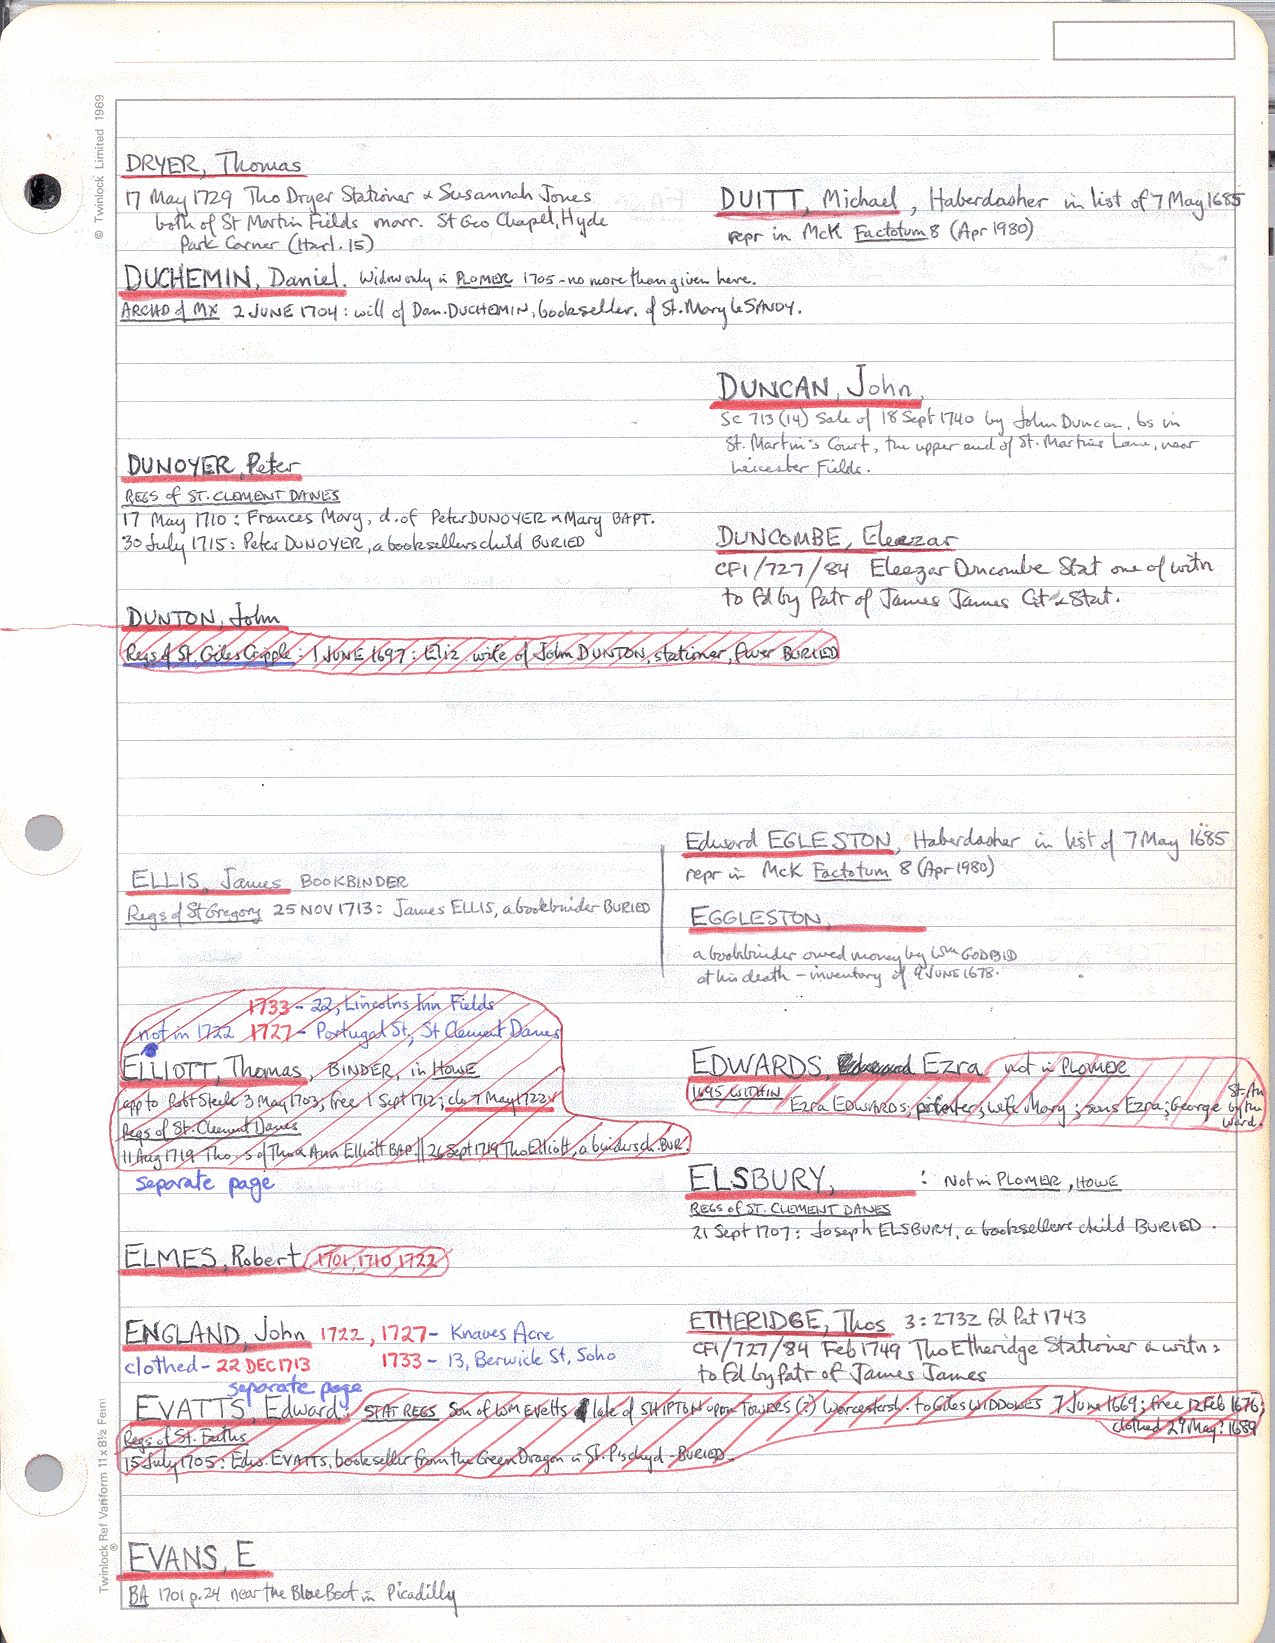 © Twinlock Limited 1969
DRYER, Thomas
17 May 1729 Tho Dryer Stationer & Susannah Jones
both of St Martin Fields marr. St Geo Chapel, Hyde
Park Corner (Harl. 15)
DUITT, Michael, Haberdasher in list of 7 May 1685
repr in McK Factotum 8 (Apr 1980)
DUCHEMIN, Daniel. Widow only in PLOMER 1705 - no more than given here.
ARCHD of MX 2 JUNE 1704: will of Dan. DUCHEMIN, bookseller, of St. Mary le SANDY.
DUNCAN, John,
SC 713 (14) Sale of 18 Sept 1740 by John Duncan, bs in
St. Martin's Court, the upper end of St. Martins Lane, near
Leicester Fields.
DUNOYER, Peter
REGS of ST. CLEMENT DANES
17 May 1710: Frances Mary, d. of Peter DUNOYER & Mary BAPT.
30 July 1715: Peter DUNOYER, a booksellers child BURIED
DUNCOMBE, Eleazar
CP1/727/84 Eleazar Duncombe Stat one of witn
to fd by Patr of James James Cit & Stat.
DUNTON, John
Regs of St. Giles Cripple: 1 JUNE 1697: Eliz wife of John DUNTON, stationer, fever BURIED
Edward EGLESTON, Haberdasher in list of 7 May 1685
repr in McK Factotum 8 (Apr 1980)
ELLIS, James BOOKBINDER
Regs of St Gregory 25 NOV 1713: James ELLIS, a bookbinder BURIED
EGGLESTON,
a bookbinder owed money by Wm GODBID
at his death - inventory of 9 JUNE 1678.
1733 - 22, Lincolns Inn Fields
not in 1722 1727 - Portugal St, St Clement Danes
ELLIOTT, Thomas, BINDER, in HOWE
app to Robt Steele 3 May 1703; free 1 Sept 1712; clo 7 May 1722
Regs of St. Clement Danes
11 Aug 1719 Tho s of Tho & Ann Elliott BAP. || 26 Sept 1719 Tho Elliott, a binders ch. BUR.
separate page
EDWARDS, Ezra not in PLOMER
1695 WITHIN Ezra EDWARDS, printer; wife Mary; sons Ezra; George St. An by the Ward.
ELSBURY, : Not in PLOMER, HOWE
REGS of ST. CLEMENT DANES
21 Sept 1707: Joseph ELSBURY, a booksellers child BURIED.
ELMES, Robert 1701, 1710, 1722
ENGLAND, John 1722, 1727 - Knaves Acre
clothed - 22 DEC 1713 1733 - 13, Berwick St, Soho
separate page
ETHERIDGE, Thos 3: 2732 fd Pat 1743
CP1/727/84 Feb 1749 Tho Etheridge Stationer a witn:
to fd by Patr of James James
EVATTS, Edward. STAT REGS Son of WM Evetts late of SHIPTON upon TOWRES (?) Worcestersh. to Giles WIDDOWES 7 June 1669; free 12 Feb 1676;
clothed 29 May? 1689
Regs of St. Faiths
15 July 1705: Edw. EVATTS, bookseller from the Green Dragon in St. P's chyd - BURIED.
EVANS, E
BA 1701 p. 24 near the Blue Boot in Picadilly
Twinlock Ref Vanform 11 x 8½ Feint